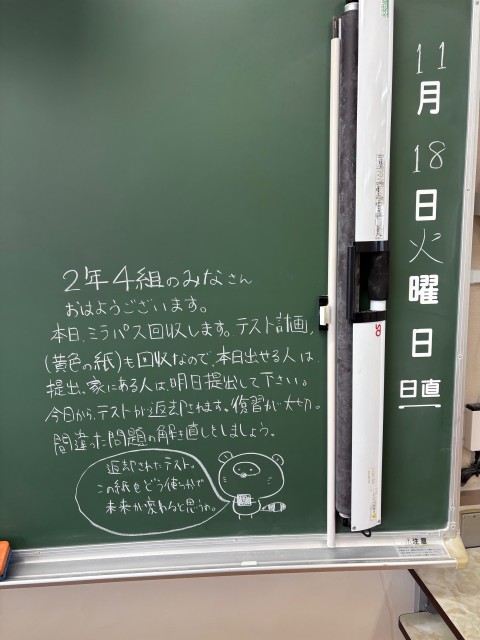 2年4組のみなさん
おはようございます。
本日、ミラパス回収します。テスト計画
(黄色の紙)も回収なので、本日出せる人は
提出。家にある人は、明日提出して下さい。
今日から、テストが返却されます。復習が大切。
間違った問題の解き直しをしましょう。
返却されたテスト。
この紙をどう使うかで
未来が変わると思うの。
11
月
18
日
火
曜
日
日直
注意